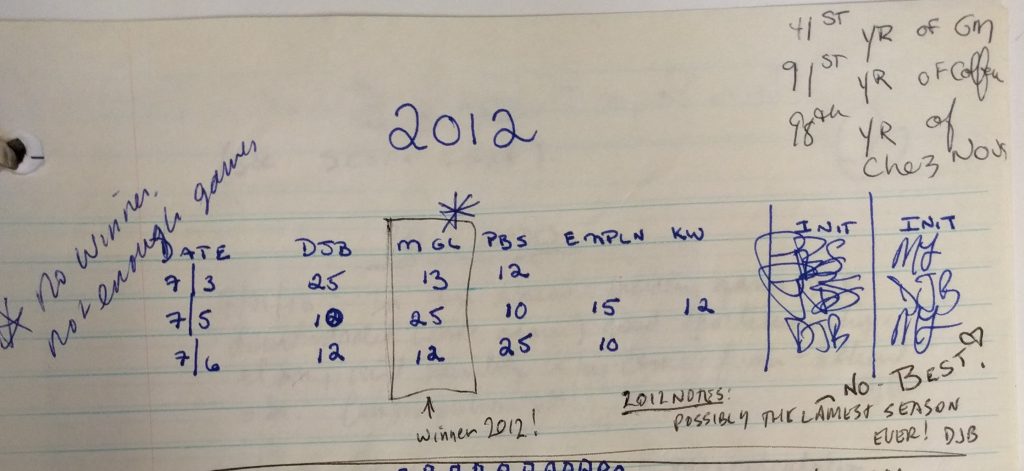 41ST YR OF GM
91ST YR OF Coffee
98th YR of
Chez Nous
2012
* No winner.
not enough games
*
DATE DJB MGL PBS EMPLN KW INIT INIT
7/3 25 13 12
7/5 10 25 10 15 12 DJB
7/6 12 12 25 10 DJB
↑
winner 2012!
NO - BEST! ♡
2012 NOTES:
POSSIBLY THE LAMEST SEASON
EVER! DJB